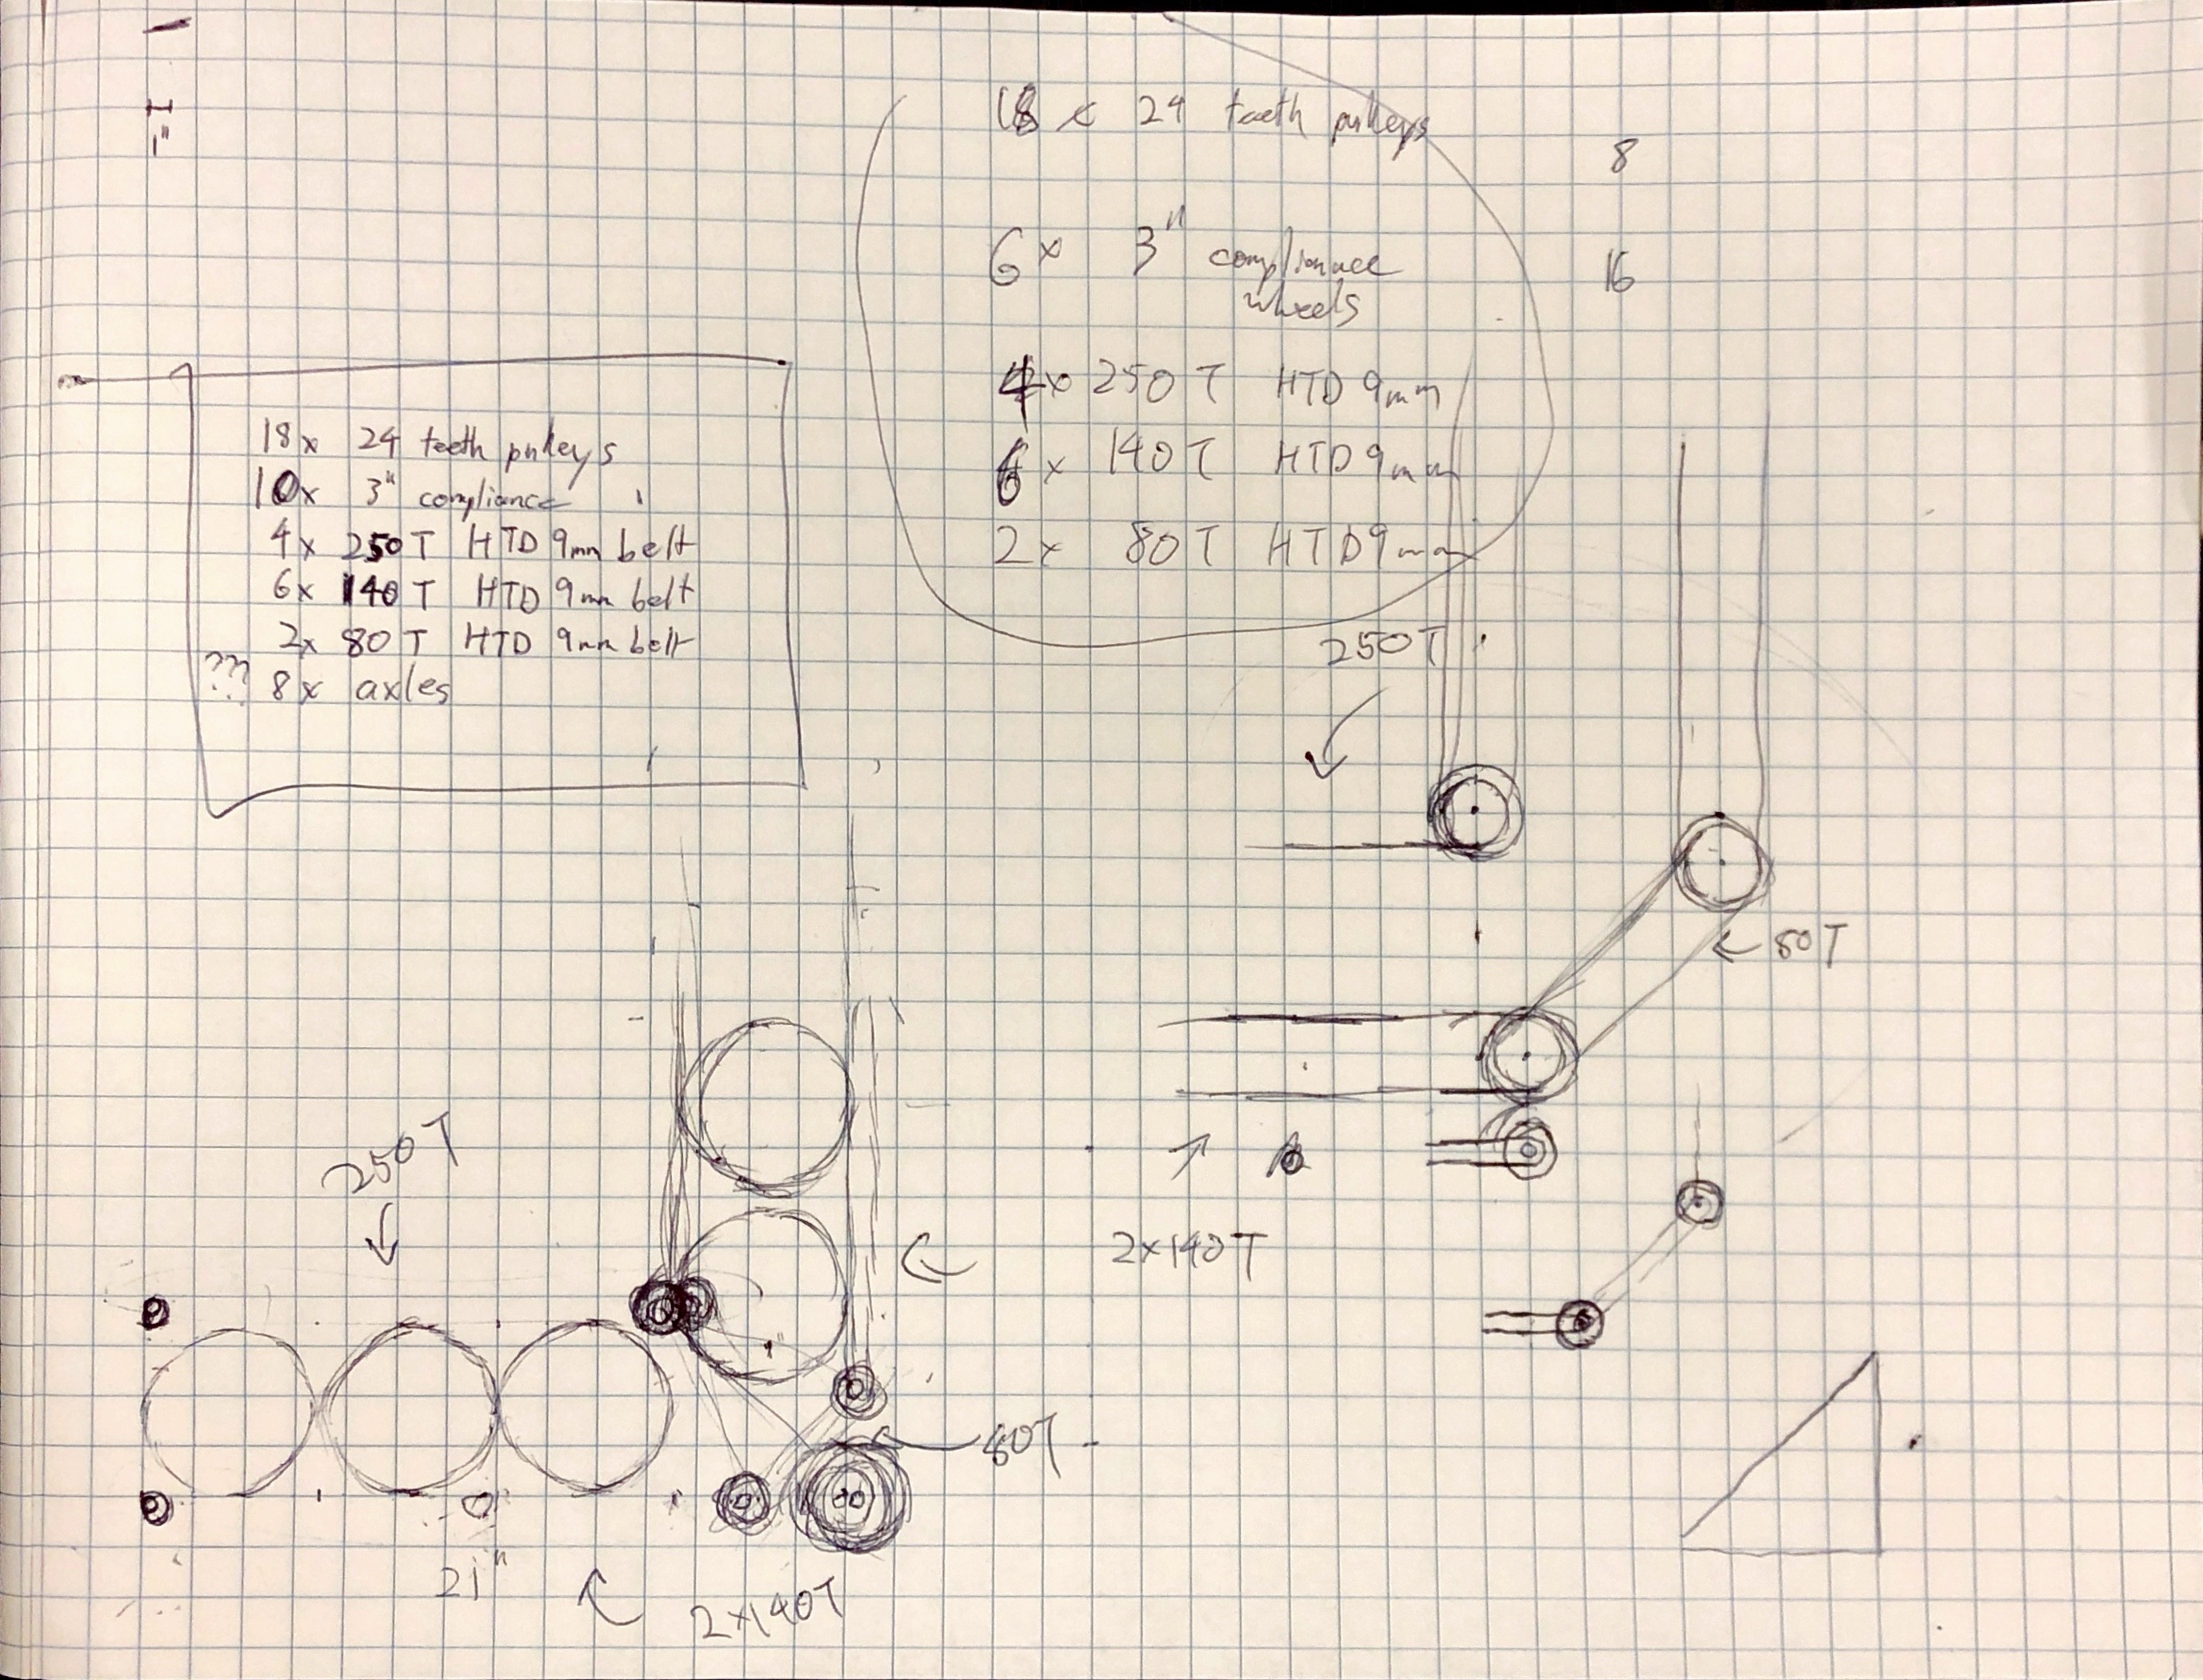 1"
18 x 24 teeth pulleys
8
6x 3" compliance
wheels
16
4x 250 T HTD 9mm
6x 140 T HTD 9mm
2x 80 T HTD 9mm
18x 24 teeth pulleys
10x 3" compliance
4x 250 T HTD 9mm belt
6x 140 T HTD 9mm belt
2x 80 T HTD 9mm belt
??? 8x axles
250T
80T
250T
2x140T
80T
21"
2x140T